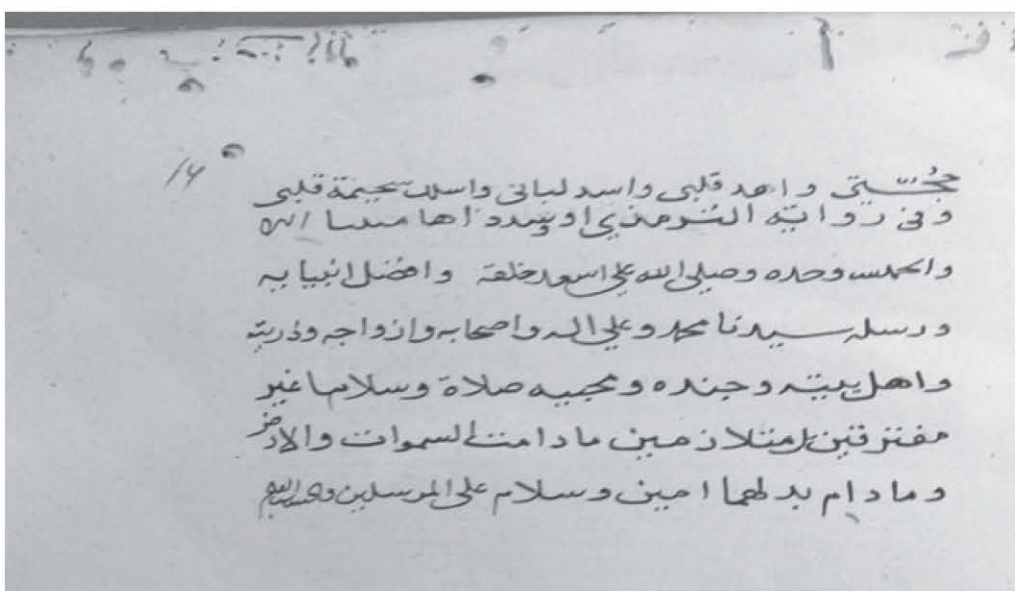 14
حُجّتي واهد قلبي واسدد لساني واسلل سخيمة قلبي
وفي رواية الترمذي اوسدد
والحمد لله وحده وصلى الله على اسعد خلقه وافضل انبيايه
ورسله سيدنا محمد وعلي اله واصحابه وازواجه وذريته
واهل بيته وجنده ومحبيه صلاة وسلاما غير
مفترقين متلازمين ما دامت السموات والارض
وما دام بدلهما امين وسلام على المرسلين